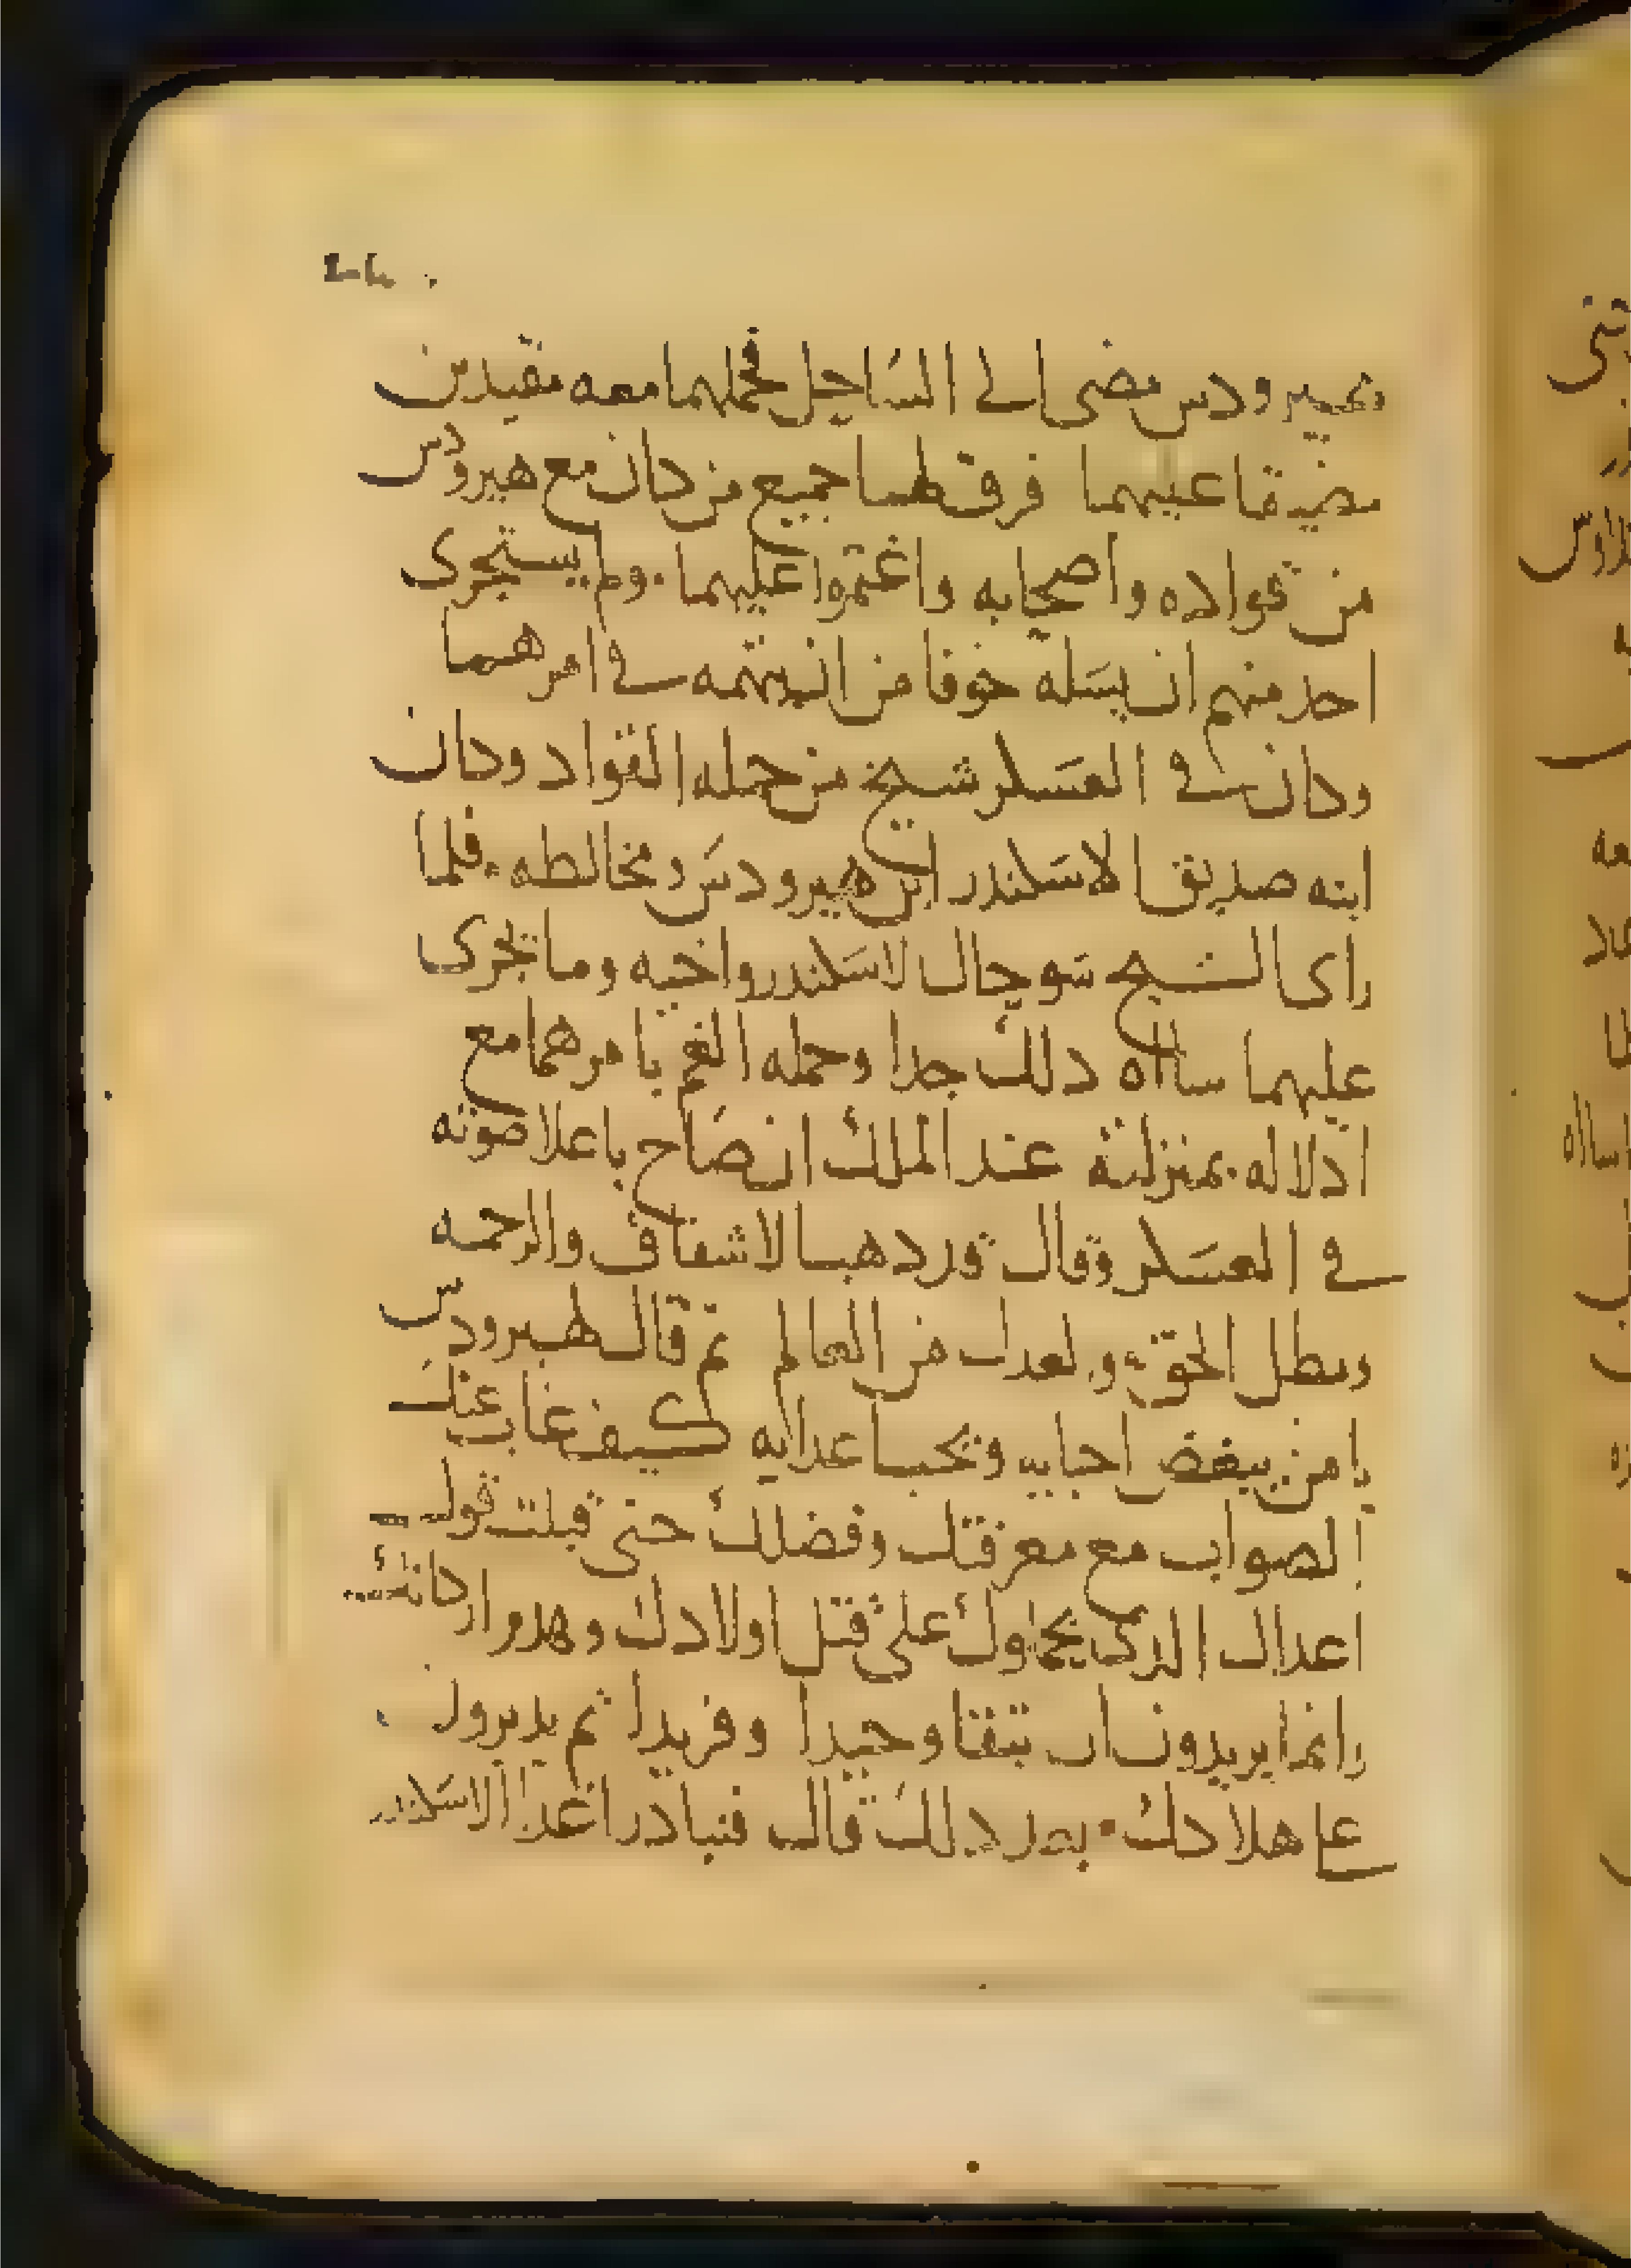 وهيرودس مضى الى الساحل فحملهما معه مقيدين
مضيقا عليهما فرق لهما جميع من كان مع هيرودس
من قواده واصحابه واغتموا عليهما ولم يستجرى
احد منهم ان يسله خوفا من ان يتهمه في امرهما
وكان في العسكر شيخ من جمله القواد وكان
ابنه صديقا لاسكندر ابن هيرودس ومخالطه فلما
راى الشيخ سو حال لاسكندر واخيه وما تجرى
عليهما سااه دلك جدا وحمله الغم بامرهما مع
ادلاله بمنزلته عند الملك ان صاح باعلا صوته
في العسكر وقال قد دهب الاشفاق والرحمه
وبطل الحق والعدل من العالم ثم قال لهيرودس
يا من يبغض احبايه ويحب اعدايه كيف غاب عنك
الصواب مع معرفتك وفضلك حتى قبلت قول
اعداك الذي يحملوك على قتل اولادك وهدم اركانك
وانما يريدون ان تبقا وحيدا وفريدا ثم يدبرون
على هلاكك بعد دلك قال فتبادر اعدا الاسكندر